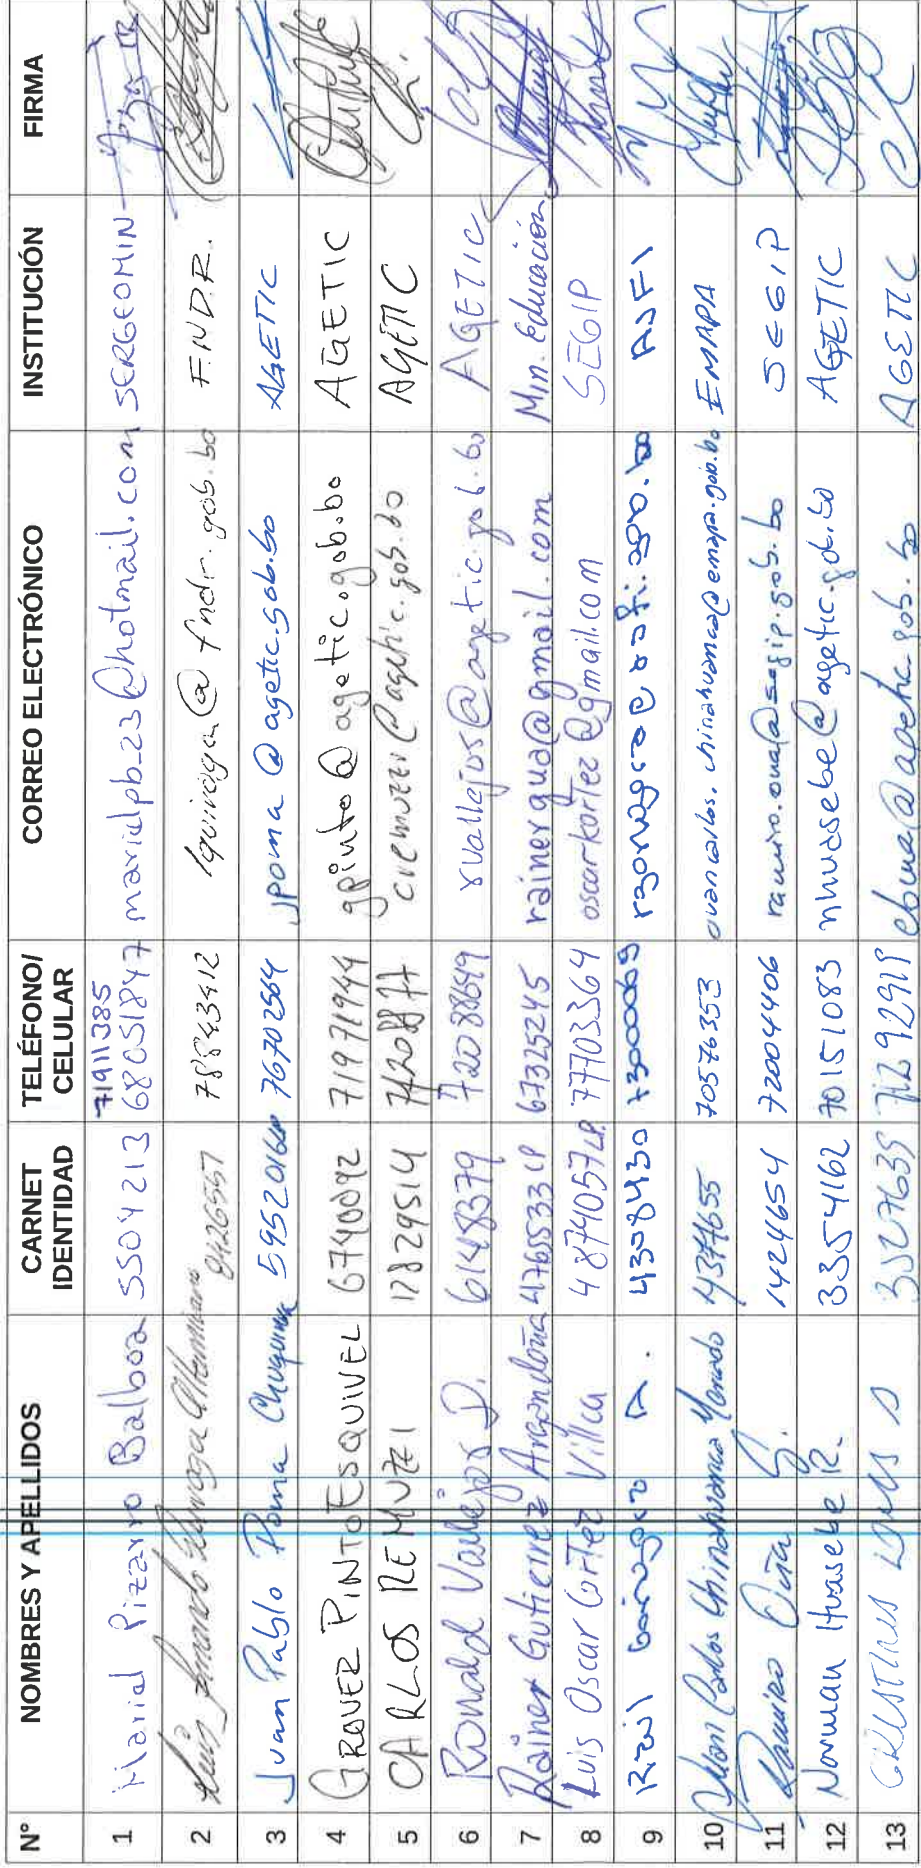 N° NOMBRES Y APELLIDOS CARNET IDENTIDAD TELÉFONO/ CELULAR CORREO ELECTRÓNICO INSTITUCIÓN FIRMA
1 Mariel Pizarro Balboa 5504213 71911385 68051847 marielpb_23@hotmail.com SERGEOMIN
2 Luis Fernando 78843412 @fndr.gob.bo F.N.D.R.
3 Juan Pablo Poma Chuquima 76702564 jpoma@agetic.gob.bo AGETIC
4 GROVER PINTO ESQUIVEL 6740092 71971944 gpinto@agetic.gob.bo AGETIC
5 CARLOS REMUZZI AGETIC
6 Ronald Vallejos D. 6148379 72088649 rvallejos@agetic.gob.bo AGETIC
7 Rainer Gutierrez Argandoña 4765331 LP 67325245 rainergua@gmail.com Min. Educación
8 Luis Oscar Cortez Villca 4874057 LP 77703364 oscarkortez@gmail.com SEGIP
9 A. 4308430 7300069
10 Juan Carlos Chinahuanca 4377655 70576353 EMAPA
11 Ramiro Oña G. 1424654 72004406 ramiro.ona@segip.gob.bo SEGIP
12 Norman Huasebe R. 3354162 70151083 nhuasebe@agetic.gob.bo AGETIC
13 3327639 AGETIC